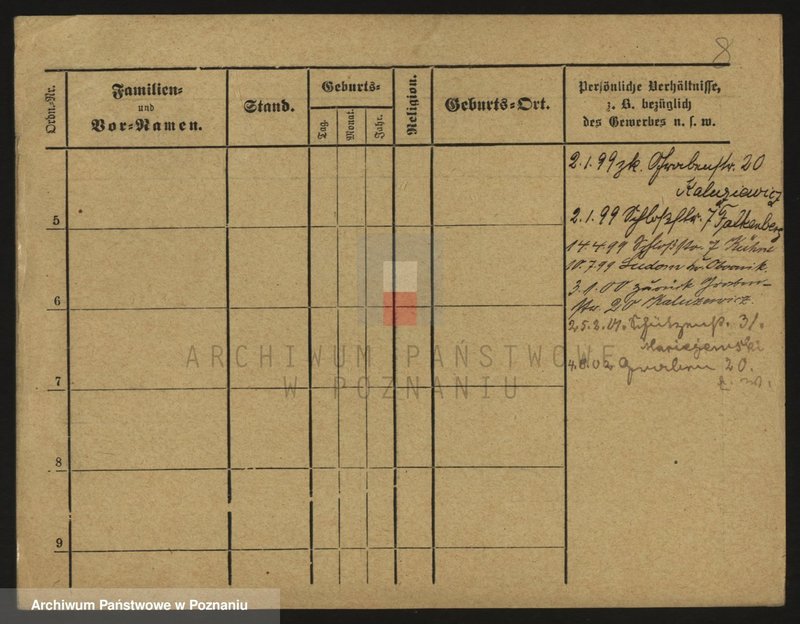 8
Ordn.-Nr.
Familien-
und
Vor-Namen.
Stand.
Geburts-
Tag.
Monat.
Jahr.
Religion.
Geburts-Ort.
Persönliche Verhältnisse,
z. B. bezüglich
des Gewerbes u. s. w.
2.1.99 zk. Grabenstr. 20
Kaluziewicz
5
2.1.99 Schloßstr. 7 Falkenberg
14.4.99 Schloßstr. 7 Kühne
10.7.99 Ludom kr. Obornik.
3.1.00 zurück Graben-
6
str. 20 Kaluzewicz.
25.2.01. Schützenstr. 31.
ARCHIWUM PAŃSTWOWE
W POZNANIU
02 Graben 20.
7
8
9
Archiwum Państwowe w Poznaniu